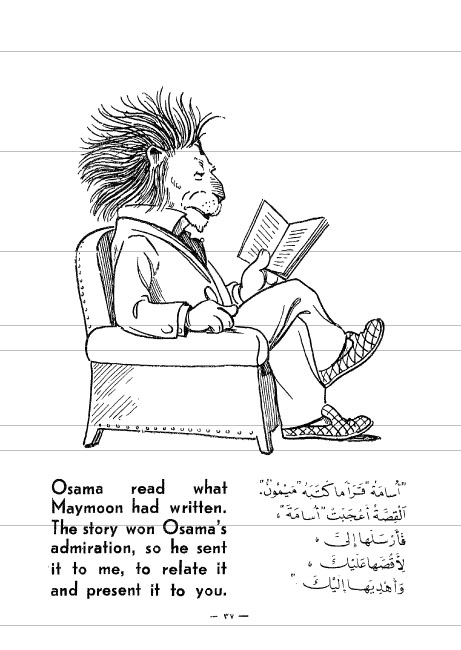 Osama read what
Maymoon had written.
The story won Osama's
admiration, so he sent
it to me, to relate it
and present it to you.
"أُسَامَةُ" قَرَأَ مَا كَتَبَهُ "مَيْمُونٌ".
اَلْقِصَّةُ أَعْجَبَتْ "أُسَامَةَ"،
فَأَرْسَلَها إِلَىَّ،
لِأَقُصَّها عَلَيْكَ،
وَأُهْدِيَها إِلَيْكَ."
— ٣٧ —